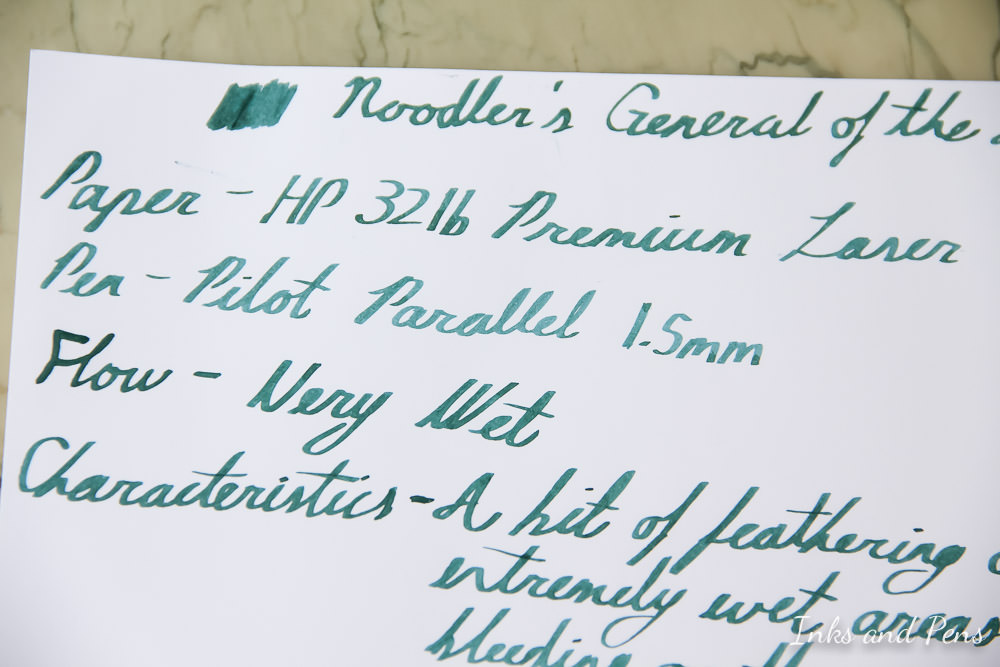 Noodler's General of the
Paper - HP 32lb Premium Laser
Pen - Pilot Parallel 1.5mm
Flow - Very Wet
Characteristics - A hit of feathering
extremely wet areas
bleeding
Inks and Pens